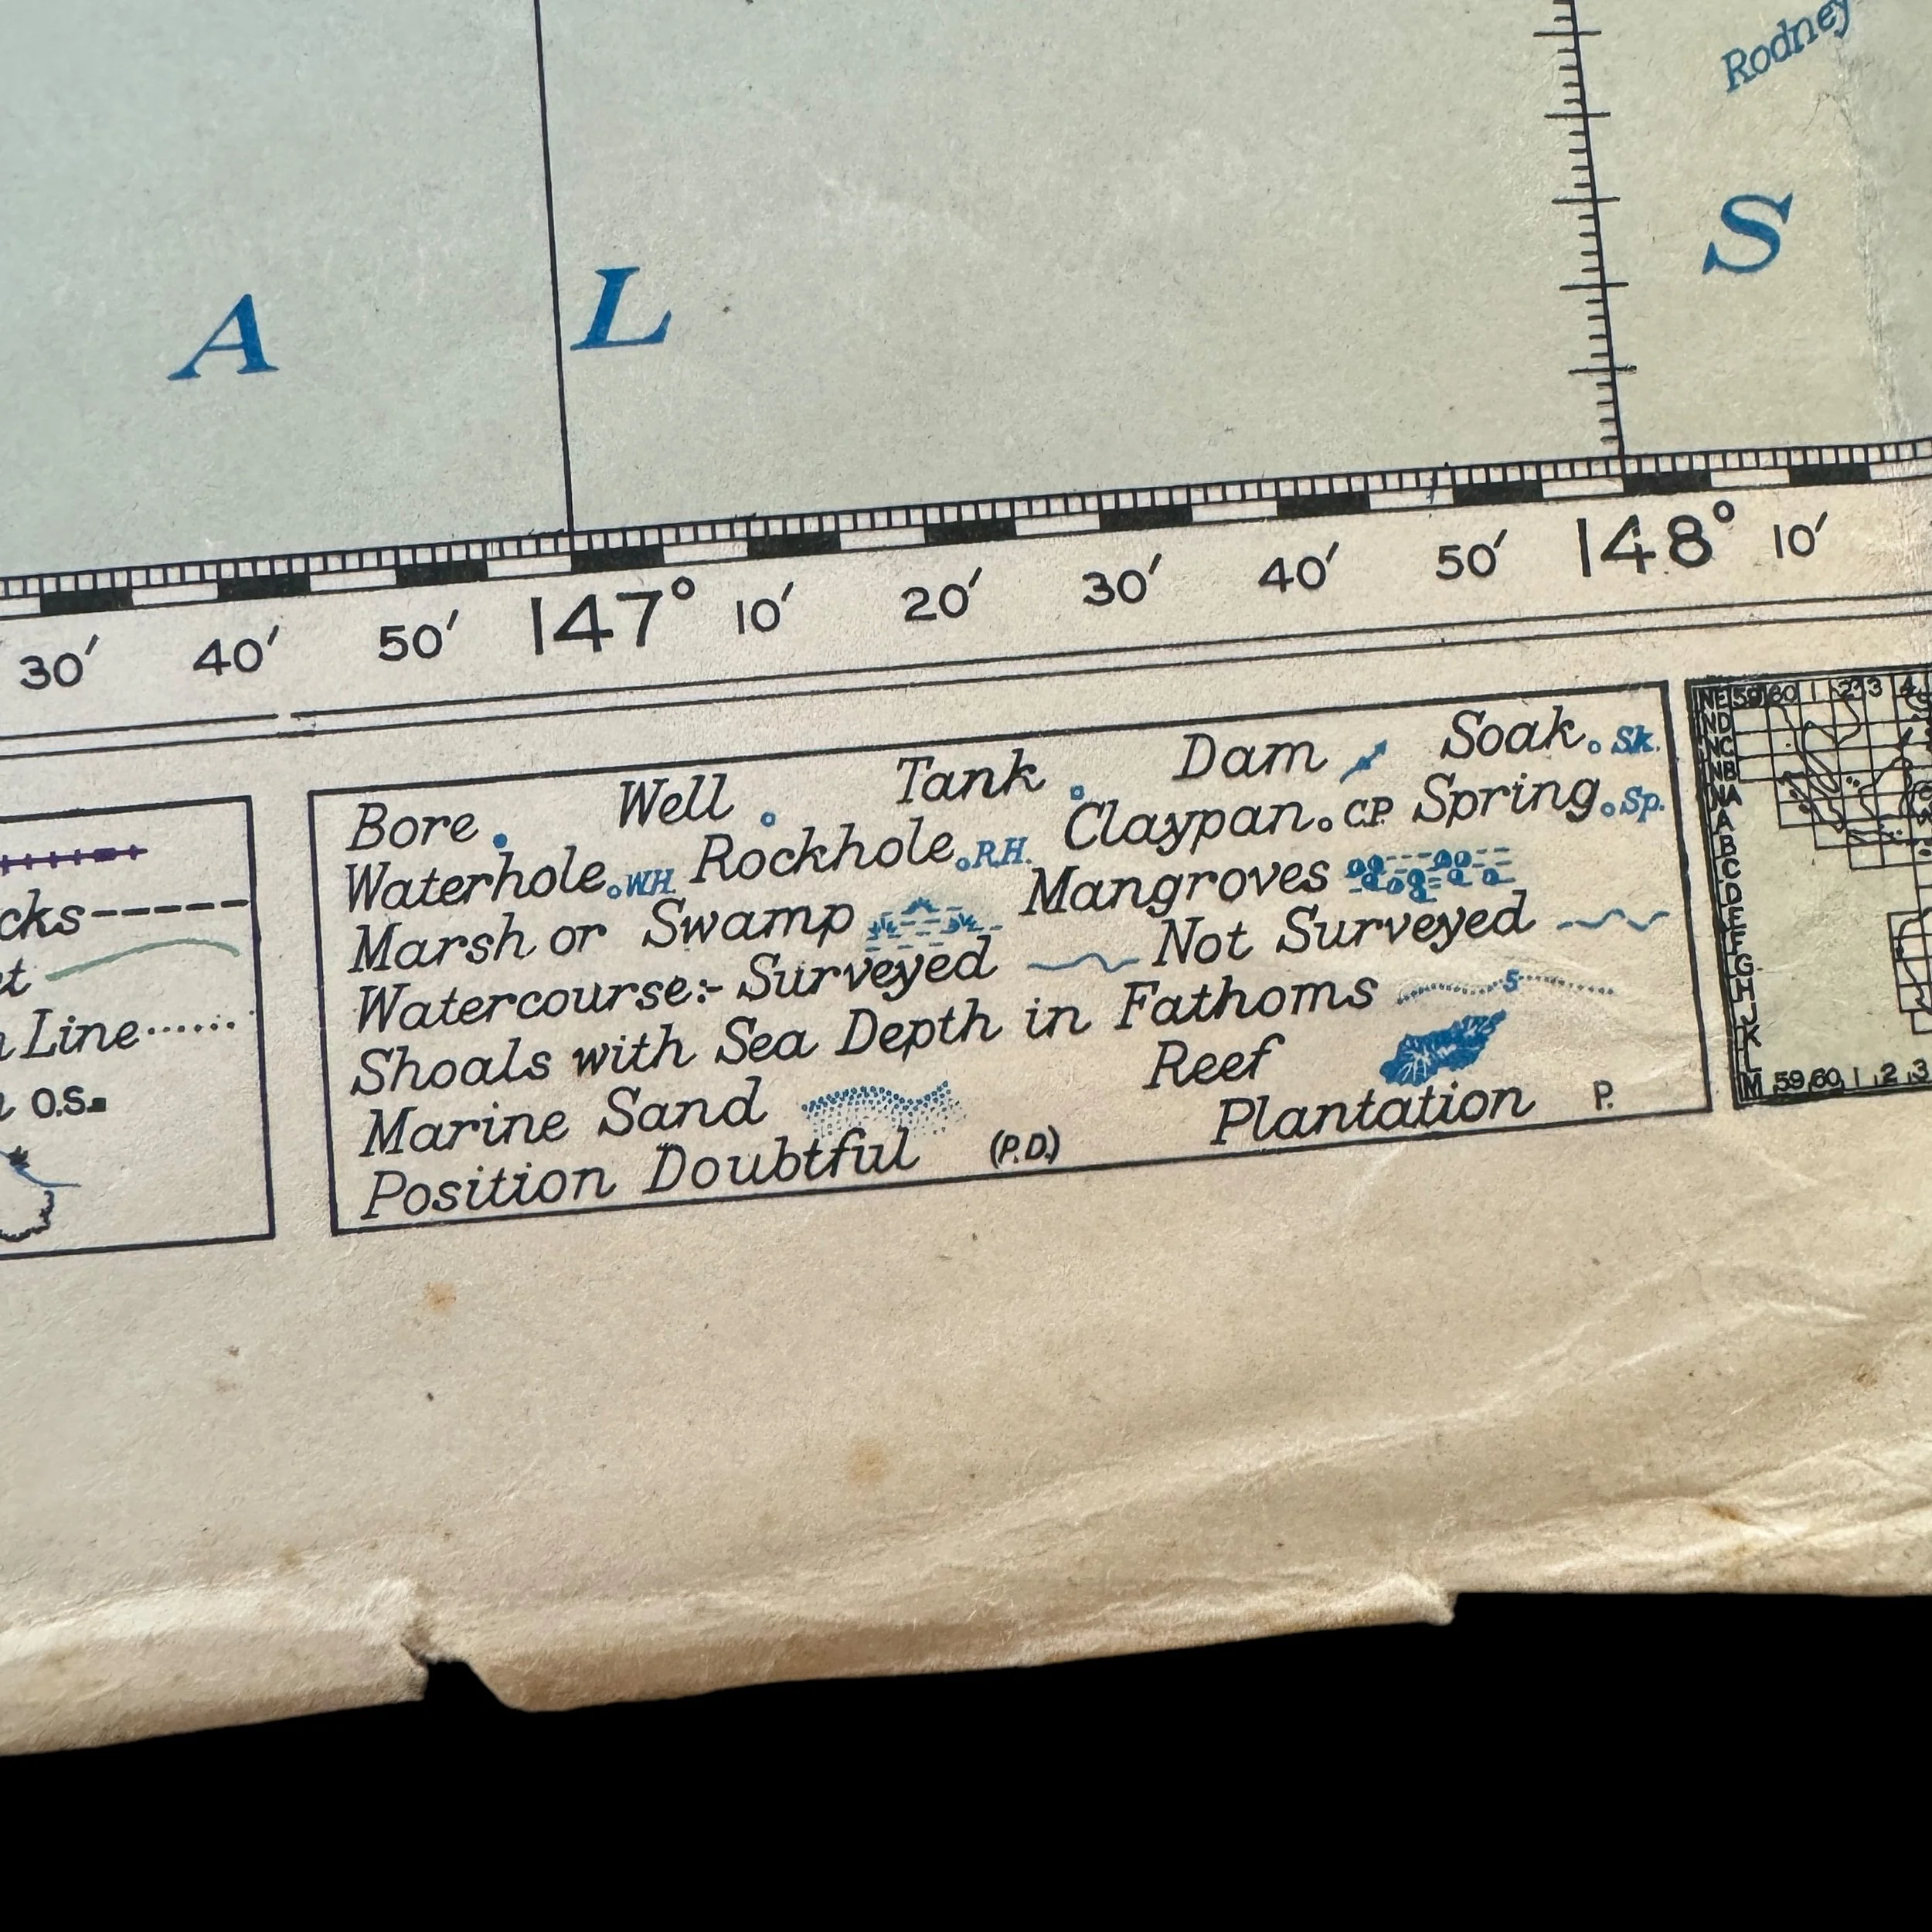 Rodney
A L S
30′ 40′ 50′ 147° 10′ 20′ 30′ 40′ 50′ 148° 10′
cks
t
Line
O.S.
Bore Well Tank Dam Soak Sk.
Waterhole W.H. Rockhole R.H. Claypan C.P. Spring Sp.
Marsh or Swamp Mangroves
Watercourse:- Surveyed Not Surveyed
Shoals with Sea Depth in Fathoms 5
Marine Sand Reef
Position Doubtful (P.D.) Plantation P.
NE 59 60 1 2 3 4
ND
NC
NB
NA
A
B
C
D
E
F
G
H
J
K
L
M 59 60 1 2 3